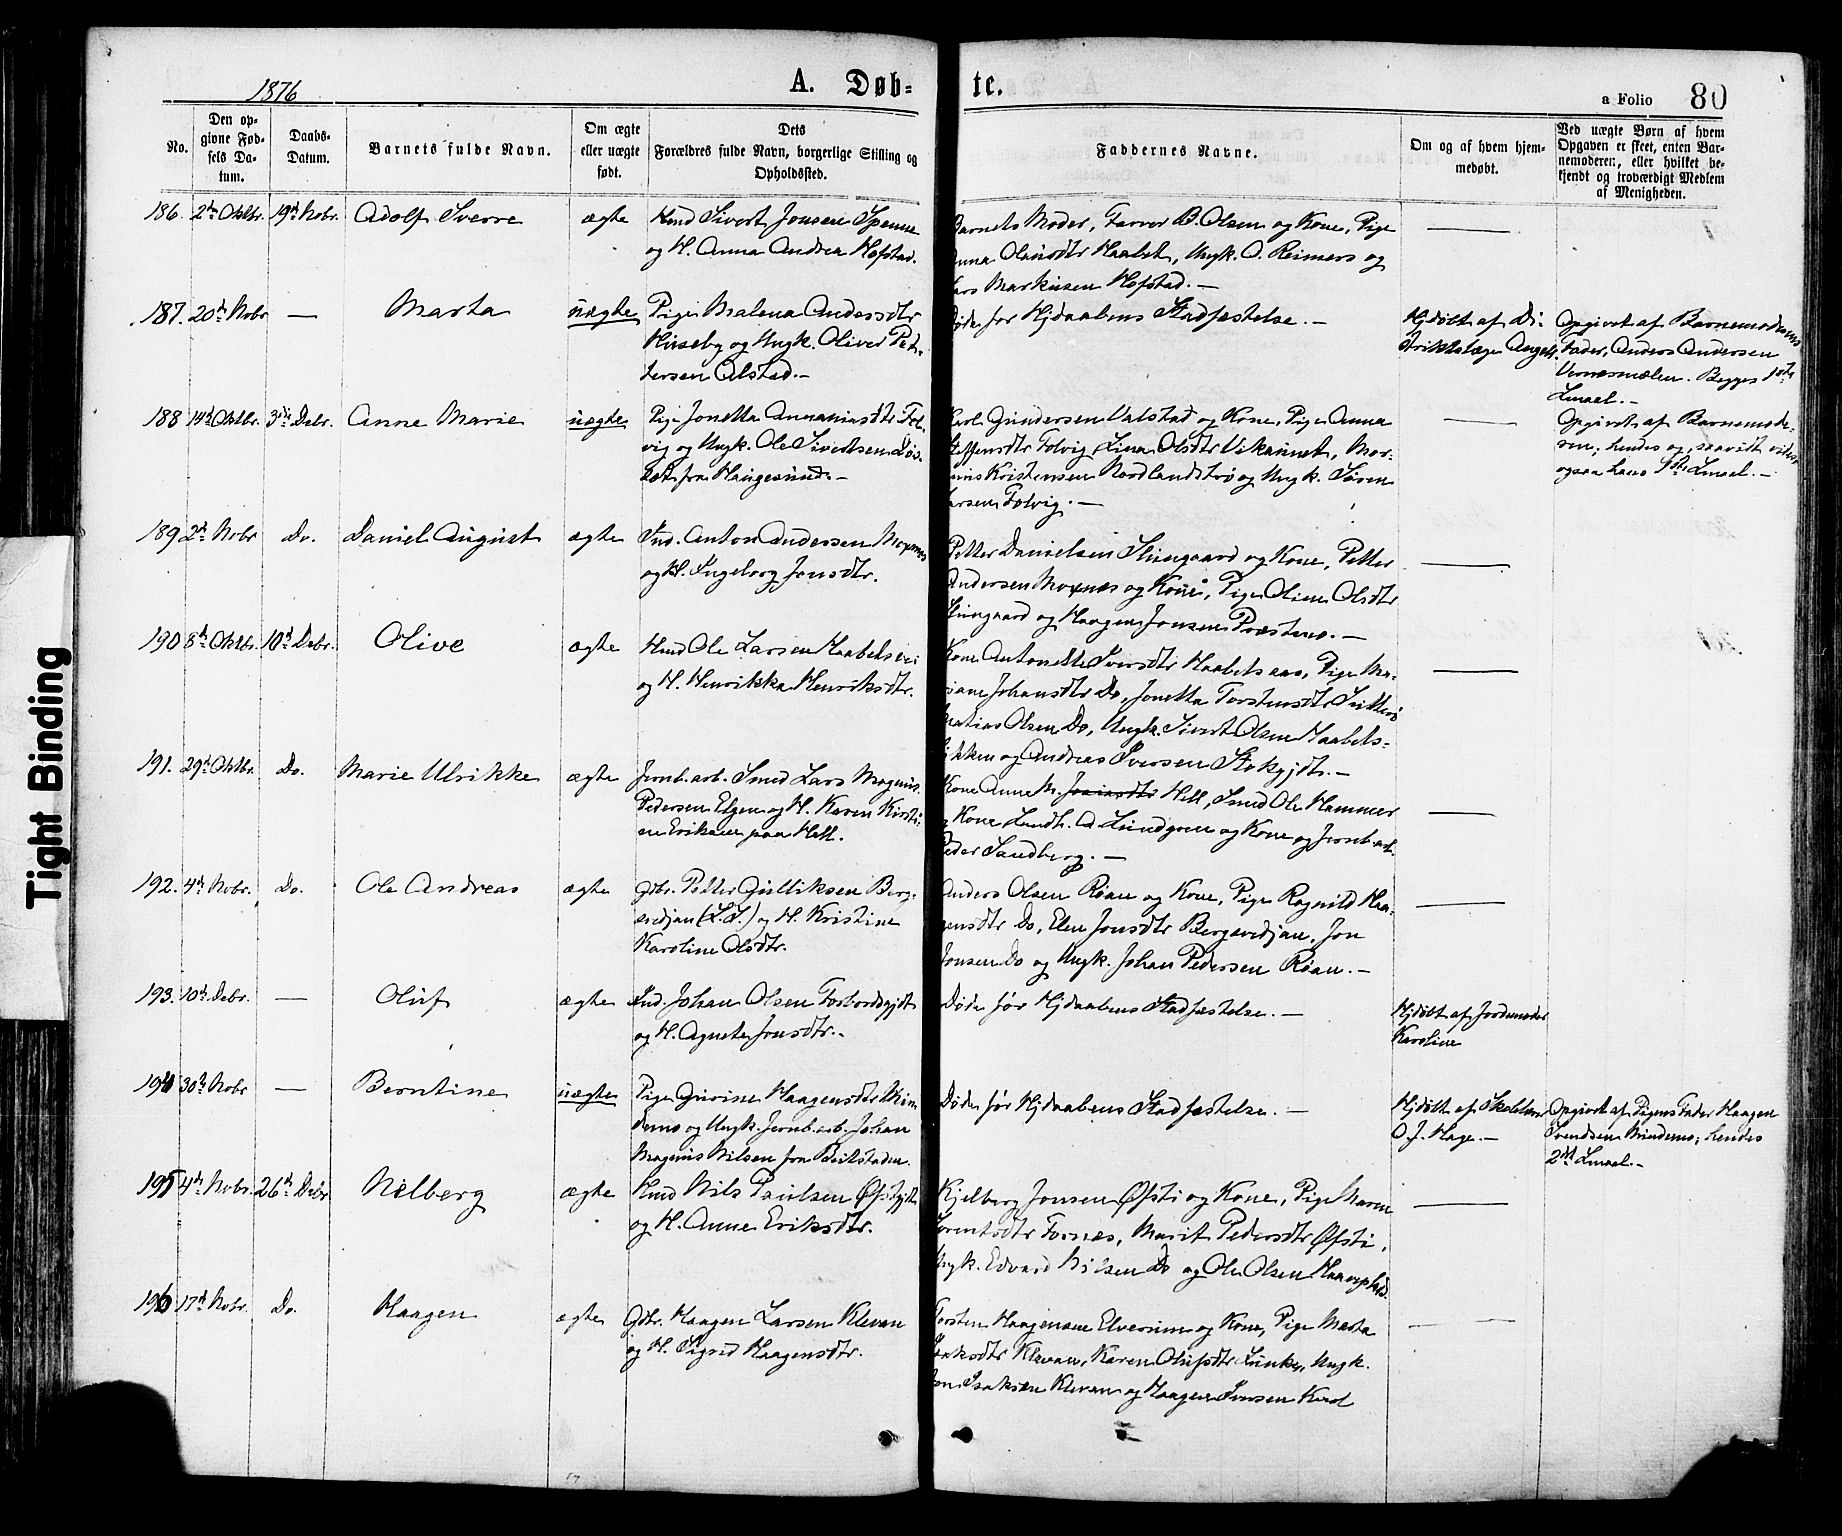 1876
A. Døb-
te.
a Folio 80
No.
Den op-
givne Fød-
sels Da-
tum.
Daabs-
Datum.
Barnets fulde Navn.
Om ægte
eller uægte
født.
Dets
Forældres fulde Navn, borgerlige Stilling og
Opholdssted.
Faddernes Navne.
Om og af hvem hjem-
medøbt.
Ved uægte Børn af hvem
Opgaven er skeet, enten Bar-
nemoderen, eller hvilket be-
kjendt og troværdigt Medlem
af Menigheden.
186. 2d Oktbr. 19d Nobr. Adolf Sverre ægte Hmd Sivert Jonsen Spenne
og H. Anna Andrea Hofstad.
Barnets Moder, Farver B. Olsen og Kone, Pige
Anna Olausdtr Haabet, Ungk. O. Reimers og
Lars Markusen Hofstad. —
187. 20d Nobr — Marta uægte Pige Malena Andersdtr
og Ungk. Oliver Pet-
tersen Alstad. —
Døde før Hjdaabens Stadfæstelse. —
Hjdøbt af Di-
striktslæge Angell.
Opgivet af Barnemoderens
Fader, Anders Andersen
Vernesmælen. Begges 1ste
Lmaal. —
188 14d Oktbr. 3die Debr. Anne Marie uægte Pige Jonetta Annaniasdtr Fol-
vig og Ungk. Ole Sivertsen
fra Haugesund. —
Karl Gundersen Valstad og Kone, Pige Anna
Steffensdtr Folvig, Lina Olsdtr Vikannet, Mor-
tinus Kristensen Nordlandstrø og Ungk. Søren
Larsen Folvig. —
Opgivet af Barnemode-
ren; hendes og, saavidt vides
ogsaa hans 1ste Lmaal. —
189 2d Nobr Do. Daniel August ægte Ind. Anton Andersen Moxnes
og H. Ingeborg Jonsdtr.
Petter Danielsen Stiengaard og Kone, Petter
Andersen Moxnæs og Kone, Pige Oline Olsdtr
Stiengaard og Haagen Jonsen Præstmo. —
190 8d Oktbr. 10d Debr. Olive ægte Hmd Ole Larsen
og H. Henrikka Henriksdtr.
Kone Antonette Iversdtr Haabetsaas, Pige Ma-
riane Johansdtr Do, Jonetta Torstensdtr
Matias Olsen Do, Ungk. Sivert Olsen Haabets-
bakken og Andreas Iversen Stokvjdt. —
191. 29d Oktbr. Do. Marie Ulrikke ægte Jernb.arb. Smed Lars Magnus
Pedersen Elgen og H. Karen Kirsti-
ne Eriksen paa Hell.
Kone Anne M. Hell, Smed Ole Hammer
og Kone, A. Lundgren og Kone og Jernb.arb.
Peder Sandberg. —
192. 4d Nobr. Do. Ole Andreas ægte Gbr. Petter Gulliksen Berg-
svedjan (L.S.) og H. Kristine
Karoline Olsdtr.
Anders Olsen Røan og Kone, Pige Ragnild Haa-
gensdtr Do, Elen Jonsdtr Bergsvedjan, Jon
Jonsen Do og Ungk. Johan Pedersen Røan. —
193. 10d Debr. — Oluf ægte Ind. Johan Olsen Forbordsgjdt
og H. Agneta Jonsdtr. —
Døde før Hjdaabens Stadfæstelse. —
Hjdøbt af Jordemoder
Karoline
194 30d Nobr — Berntine uægte Pige Gurine Haagensdtr Min-
demo og Ungk. Jernb.arb. Johan
Magnus Nilsen fra Beitstaden.
Døde før Hjdaabens Stadfæstelse. —
Hjdøbt af Skolelærer
O. J. Hage. —
Opgivet af Pigens Fader Haagen
Svendsen Mindemo; hendes
2det Lmaal. —
195 4d Nobr. 26d Debr Nilberg ægte Hmd Nils Paulsen Øfstigjdt
og H. Anne Eriksdtr.
Kjelberg Jonsen Øfsti og Kone, Pige Maren
Lorentsdtr Fornæs, Marit Pedersdtr Øfsti,
Ungk. Edvard Nilsen Do og Ole Olsen
196 17d Nobr. Do. Haagen ægte Gbr. Haagen Larsen Klevan
og H. Sigrid Haagensdtr.
Torsten Haagensen Elverum og Kone, Pige Marta
Isaksdtr Klevan, Karen Olufsdtr, Ungk.
Jon Isaksen Klevan og Haagen Iversen
Tight Binding